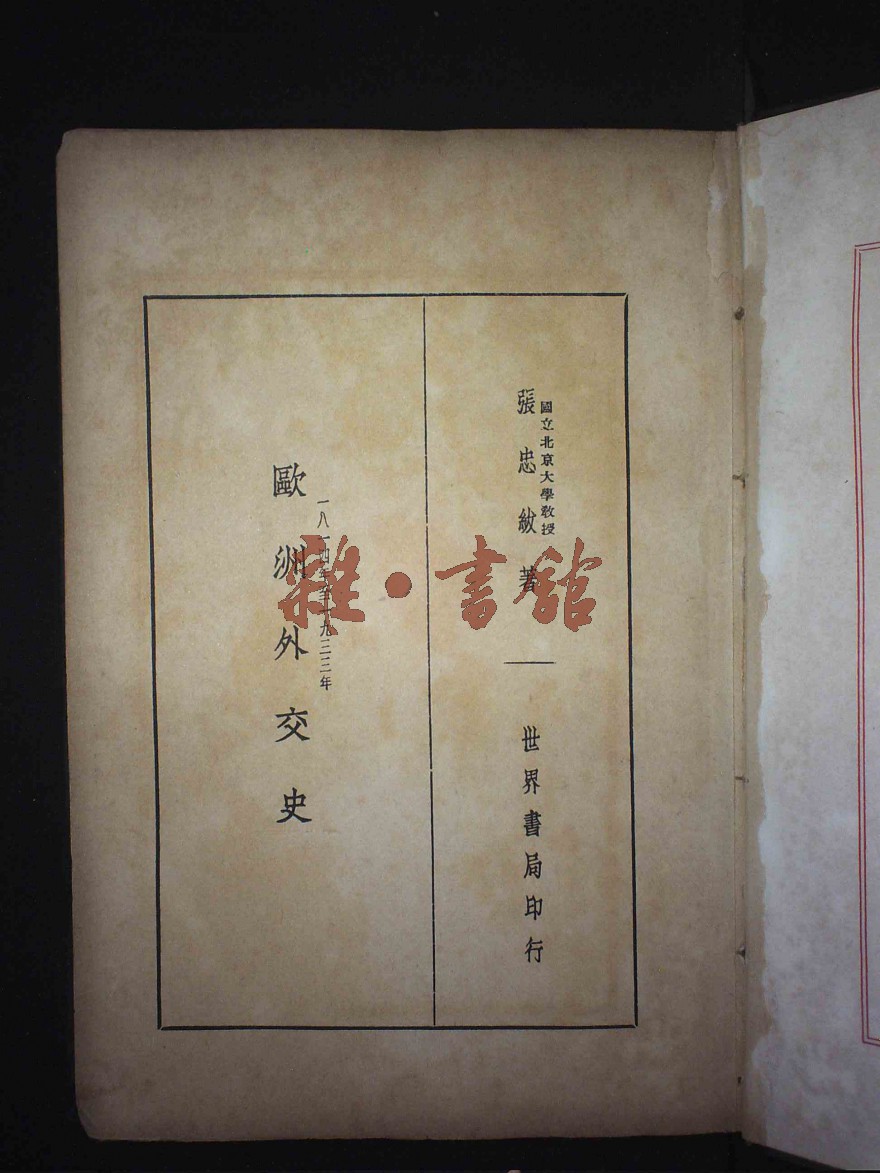 國立北京大學教授
張忠紱著
世界書局印行
一八一四年至一九三三年
歐洲外交史
雜·書館